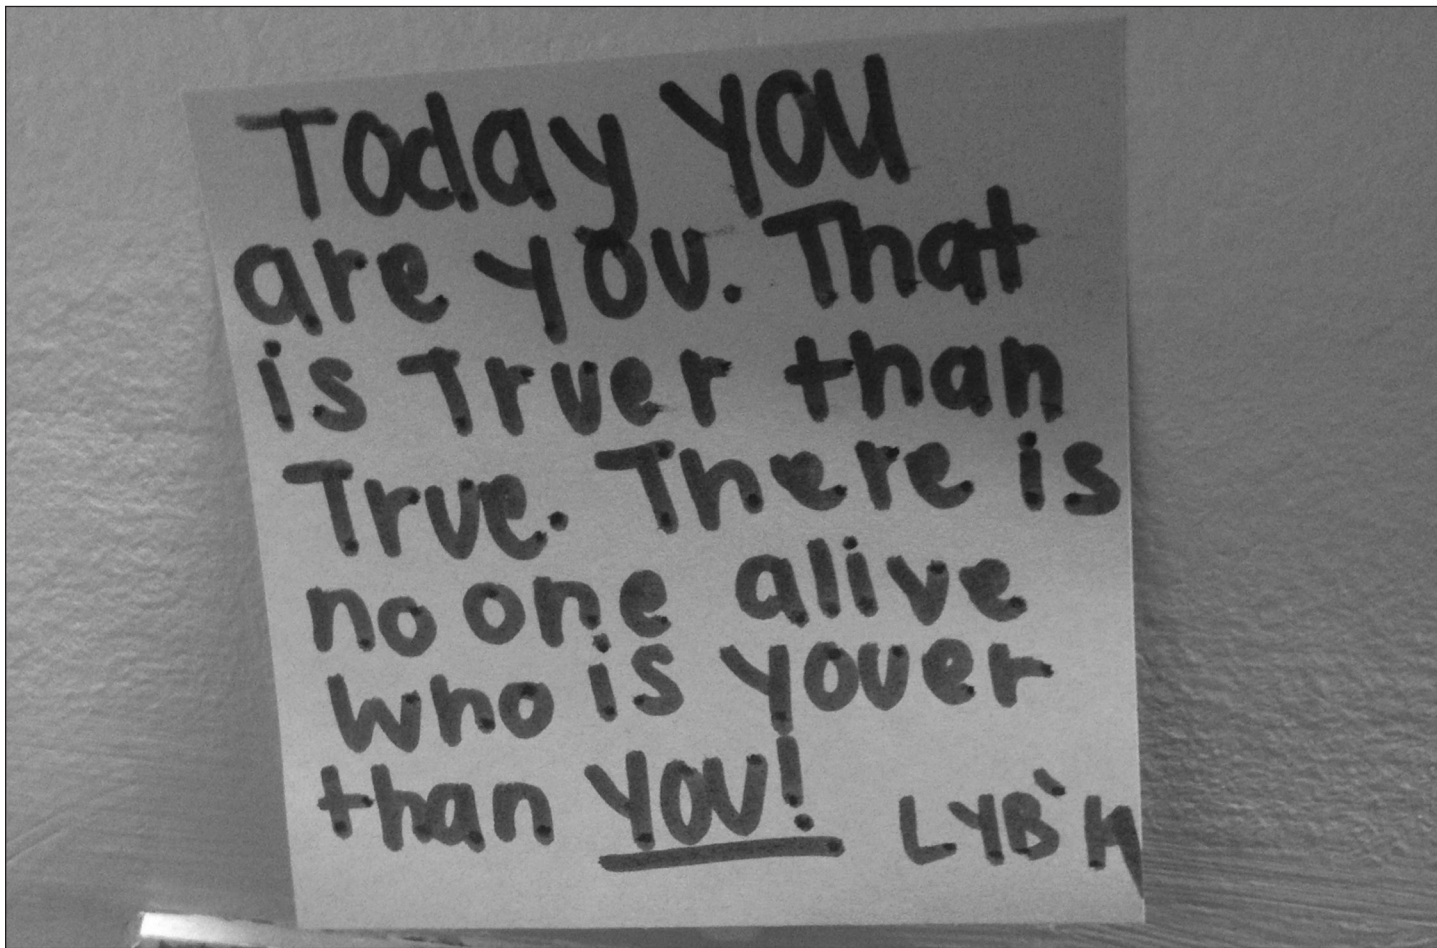 Today you
are you. That
is Truer than
True. There is
no one alive
who is youer
than you!